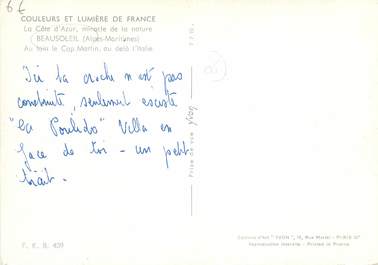 6€
COULEURS ET LUMIÈRE DE FRANCE
La Côte d'Azur, miracle de la nature
BEAUSOLEIL (Alpes-Maritimes)
Au loin le Cap Martin, au delà l'Italie.
Ici la croche n'est pas
construite, seulement existe
"La Poulido" Villa en
face de toi - un petit
trait.
Prise de vue Yvon
Editions d'Art "YVON", 15, Rue Martel - PARIS-10e
Reproduction interdite - Printed in France
F. E. B. 439